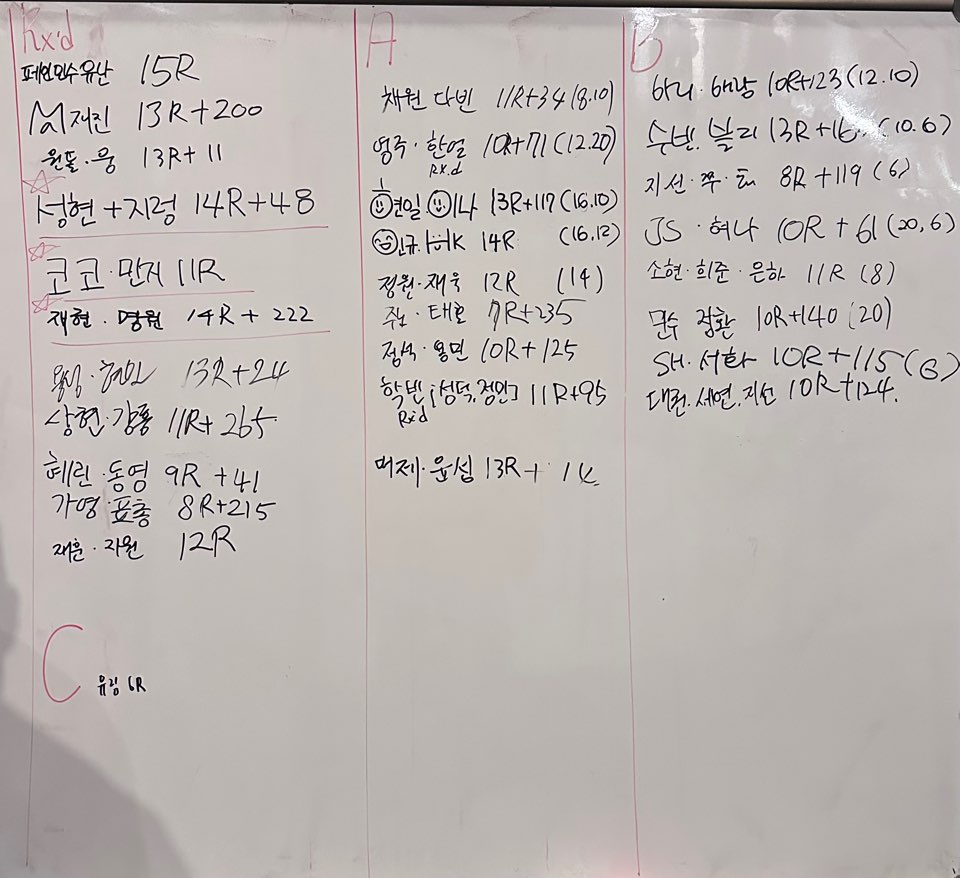 Rx'd
페인민수유산 15R
M재진 13R+200
원돌·웅 13R+11
성현+지령 14R+48
코코·만지 11R
재현·명원 14R+222
13R+24
상현·강룡 11R+265
혜린·동영 9R+41
가영·표총 8R+215
재훈·지원 12R
C
유림 6R
A
채원 다빈 11R+34(8.10)
영주·한얼 10R+71(12.20)
Rx.d
연일 이나 13R+117(16.10)
인규 K 14R (16.12)
정원·재욱 12R (14)
태호 7R+235
정석·용민 10R+125
학빈[성덕,정민] 11R+95
Rx'd
윤섭 13R+ 14
B
하니·해랑 10R+123(12.10)
수빈.블리 13R+16 (10.6)
지선·쭈·태 8R+119(6)
JS·혀나 10R+61(20,6)
소현·희준·은하 11R(8)
민수 정환 10R+140(20)
SH.서화 10R+115(6)
세연.지선 10R+124.